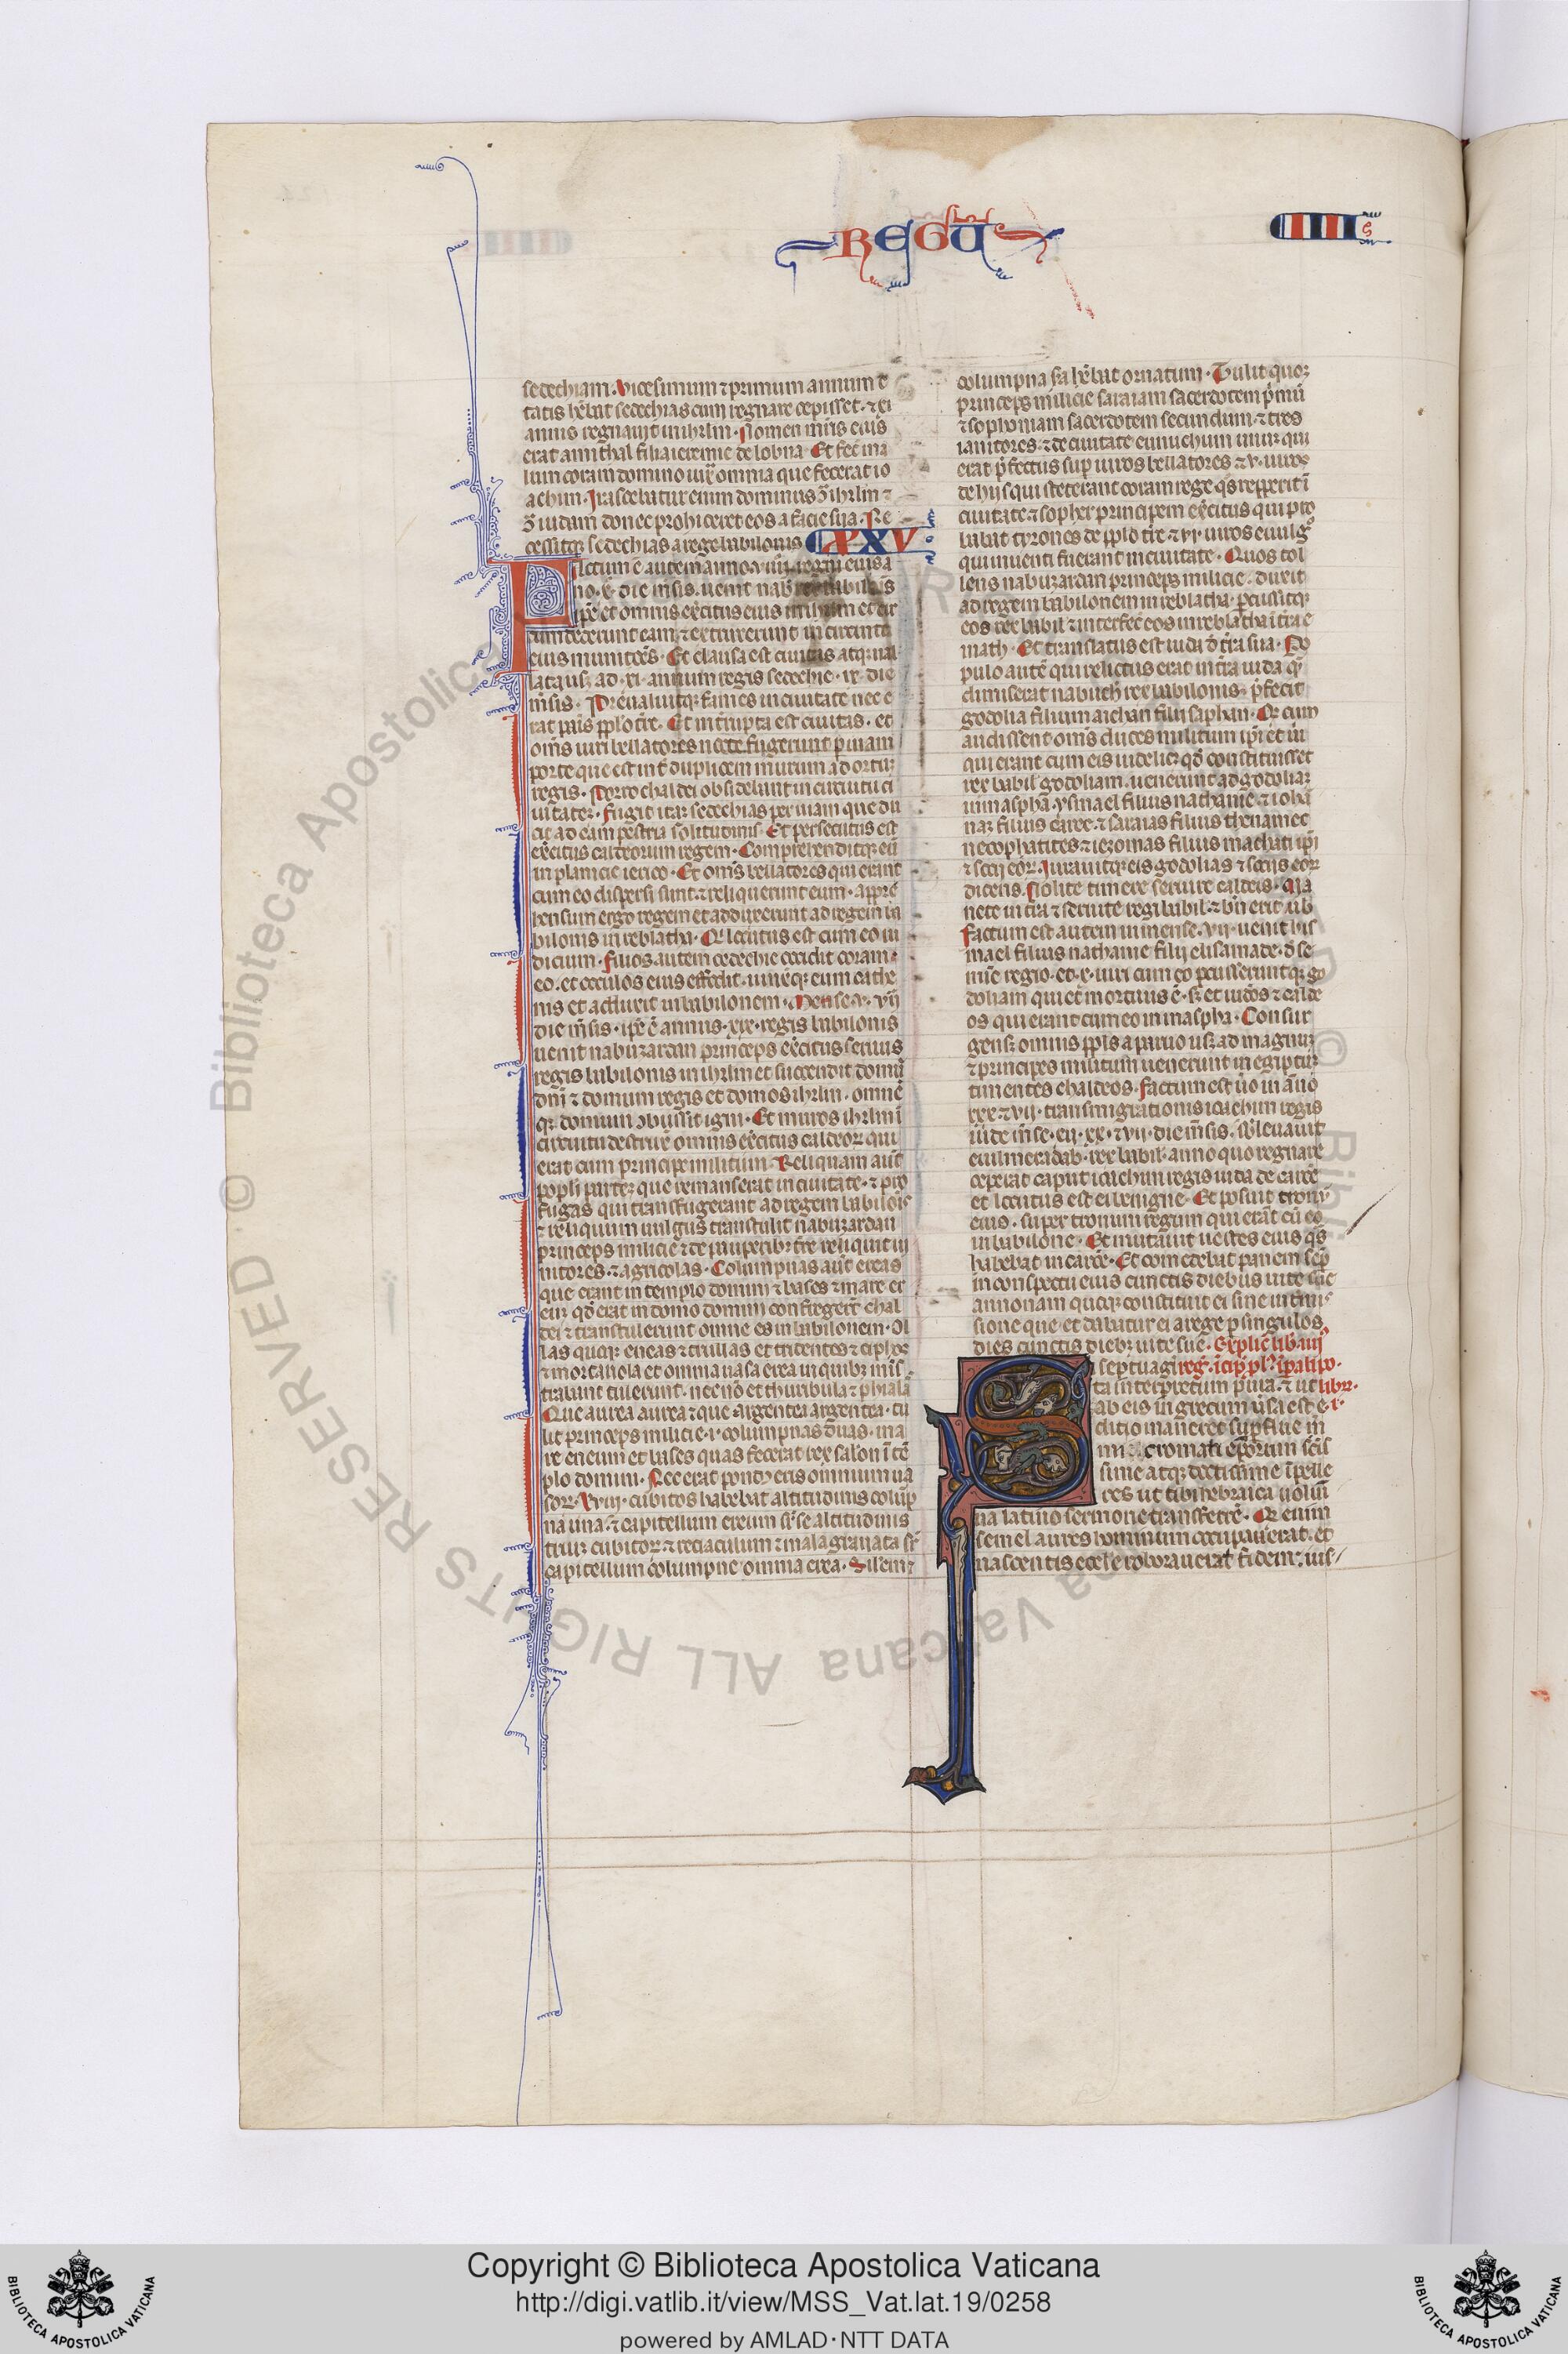 REGŪ
IIII
sedechiam. Vicesimum ⁊ primum annum e
tatis hēbat sedechias cum regnare cepisset. ⁊ xi
annis regnauit in ihrlm. Nomen mr̄is eius
erat amithal filia ieremie de lobna. Et fec̄ ma
lum coram domino iux̄ omnia que fecerat io
achim. Irascebatur enim dominus ꝯ̄ ihrlm ⁊
ꝯ̄ iudam donec prohiceret eos a facie sua. Re
cessitqꝫ sedechias a rege babilonis
XXV
Factum ē autem anno viiii regni eius
no. x. die mēsis. uenit nab rex babilōis
ip̄e et omnis exc̄itus eius in ihrlm et cir
cumdederunt eam. ⁊ extruxerunt in circuitu
eius munitōes. Et clausa est ciuitas atqꝫ ual
lata usqꝫ ad. xi. annum regis sedechie. ix. die
mēsis. Preualuitqꝫ fames in ciuitate nec e
rat panis pplo tr̄e. Et int̄rupta est ciuitas. et
om̄s uiri bellatores nocte fugerunt per uiam
porte que est int̄ duplicem murum ad ortuꝫ
regis. Porro chaldei obsidebant in circuitu ci
uitateꝫ. Fugit itaqꝫ sedechias per uiam que du
cit ad campestria solitudinis. Et persecutus est
exc̄itus caldeorum regem. Comprehenditqꝫ eū
in planicie ierico. Et om̄s bellatores qui erant
cum eo dispersi sunt ⁊ reliquerunt eum. appre
hensum ergo regem et adduxerunt ad regem ba
bilonis in reblatha. Qui locutus est cum eo iu
dicium. Filios autem cedechie occidit coram
eo. et oculos eius effodit. uinxitqꝫ eum cathe
nis et adduxit in babilonem. Mense. v. vij
die mēsis. ip̄e ē annus. xix. regis babilonis
uenit nabuzardan princeps exc̄itus seruus
regis babilonis in ihrlm et succendit domū
dn̄i ⁊ domum regis et domos ihrlm. omnē
qꝫ domum ꝯbussit igni. Et muros ihrlm ī
circuitu destruxit omnis exc̄itus caldeoꝝ qui
erat cum principe militum. Reliquam aut̄
popli parteꝫ que remanserat in ciuitate. ⁊ pro
fugas qui transfugerant ad regem babilois
⁊ reliquum uulgus transtulit nabuzardan
princeps milicie ⁊ de pauperibꝫ tr̄e reliquit ui
nitores. ⁊ agricolas. Columpnas aut̄ ereas
que erant in templo domini ⁊ bases ⁊ mare er
eum qd̄ erat in domo domini confregert̄ chal
dei ⁊ transtulerunt omne es in babilonem. Ol
las quoqꝫ eneas ⁊ trullas et tridentes ⁊ ciphos
⁊ mortariola et omnia uasa erea in quibꝫ minis
trabant tulerunt. necnō et thuribula ⁊ phialas
Que aurea aurea ⁊ que argentea argentea. tu
lit princeps milicie. i. columpnas duas. ma
re eneum et bases quas fecerat rex salomō ī tē
plo domini. Nec erat pondꝰ eris omnium ua
soꝝ. Xviii. cubitos habebat altitudinis colūp
na una. ⁊ capitellum ereum sr̄ se altitudinis
triuꝫ cubitoꝝ ⁊ retiaculum ⁊ mala granata sr̄
capitellum columpne omnia erea. Silemꝫ
columpna sc̄da hēbat ornatum. Tulit quoqꝫ
princeps milicie saraiam sacerdotem p̄mū
⁊ sophoniam sacerdotem secundum. ⁊ tres
ianitores. ⁊ de ciuitate eunuchum unuꝫ qui
erat p̄fectus sup uiros bellatores ⁊ v. uiros
de hijs qui steterant coram rege qͦs repperit ī
ciuitate. ⁊ sopher principem exc̄itus qui pro
babat tyrones de pplo tr̄e. ⁊ vi. uiros e uulgͦ
qui inuenti fuerant in ciuitate. Quos tol
lens nabuzardan princeps milicie. duxit
ad regem babilonem in reblatha. percussitqꝫ
eos rex babil̄. ⁊ interfec̄ eos in reblatha ī tr̄a e
math. Et translatus est iuda d̄ tr̄a sua. Po
pulo autē qui relictus erat in tr̄a iuda qͤ
dimiserat nabuch̄ rex babilonis. p̄fecit
godolia filium aichan filii saphan. Qd̄ cum
audissent om̄s duces militum ip̄i et ui
qui erant cum eis uidelicꝫ qd̄ constituisset
rex babil̄ godoliam. uenerunt ad godoliaꝫ
in masphā. ysmael filius nathanie. ⁊ iohā
naꝫ filius caree. ⁊ saraias filius thenamec
necophatites. ⁊ iezomas filius machati ip̄i
⁊ socii eoꝝ. Iurauitqꝫ eis godolias ⁊ sociis eoꝝ
dicens. Nolite timere seruire caldeis. Ma
nete in tr̄a ⁊ seruite regi babil̄. ⁊ bn̄ erit uob̄
Factum est autem in mense. vii. uenit his
mael filius nathanie filii elisamate. d̄ se
mīe regio. et. x. uiri cum eo percusseruntqꝫ go
doliam qui et̄ mortuus ē. sꝫ et iud̄os ⁊ calde
os qui erant cum eo in maspha. Consur
gensqꝫ omnis ppls a paruo usqꝫ ad magnuꝫ
⁊ principes militum uenerunt in egiptuꝫ
timentes chaldeos. Factum est ūo in āno
xxx. ⁊ vii. transmigrationis ioachim regis
iude mēse. xii. xx. ⁊ vii. die mēsis. sb̄leuauit
euilmeradab. rex babil̄. anno quo regnare
ceperat caput ioachim regis iuda de carcere
et locutus est ei benigne. Et posuit tronū
eius. super tronum regum qui erāt cū eo
in babilone. Et mutauit uestes eius qͣs
habebat in carcere. Et comedebat panem semp̄
in conspectu eius cunctis diebus uite sue
annonam quoqꝫ constituit ei sine intmi
sione que et dabatur ei a rege per singulos
dies cunctis diebꝫ uite sue. Explic̄ lib. iiij
reg. īcip̄ pl̄. ī pali po.
libr. i.
Si septuagi
ta interpretum pura. ⁊ ut
ab eis in grecum ūsa est e
ditio maneret sup̄flue m
mi cromati ep̄orum sc̄issi
sime atqꝫ doctissime īpelle
res ut tibi hebraica uolūi
na latino sermone transferrē. Qd̄ enim
semel aures hominum occupauerat. et
nascentis eccl̄e roborauerat fidem. ius
Copyright © Biblioteca Apostolica Vaticana
http://digi.vatlib.it/view/MSS_Vat.lat.19/0258
powered by AMLAD·NTT DATA
BIBLIOTECA APOSTOLICA VATICANA
BIBLIOTECA APOSTOLICA VATICANA
© Biblioteca Apostolica Vaticana ALL RIGHTS RESERVED